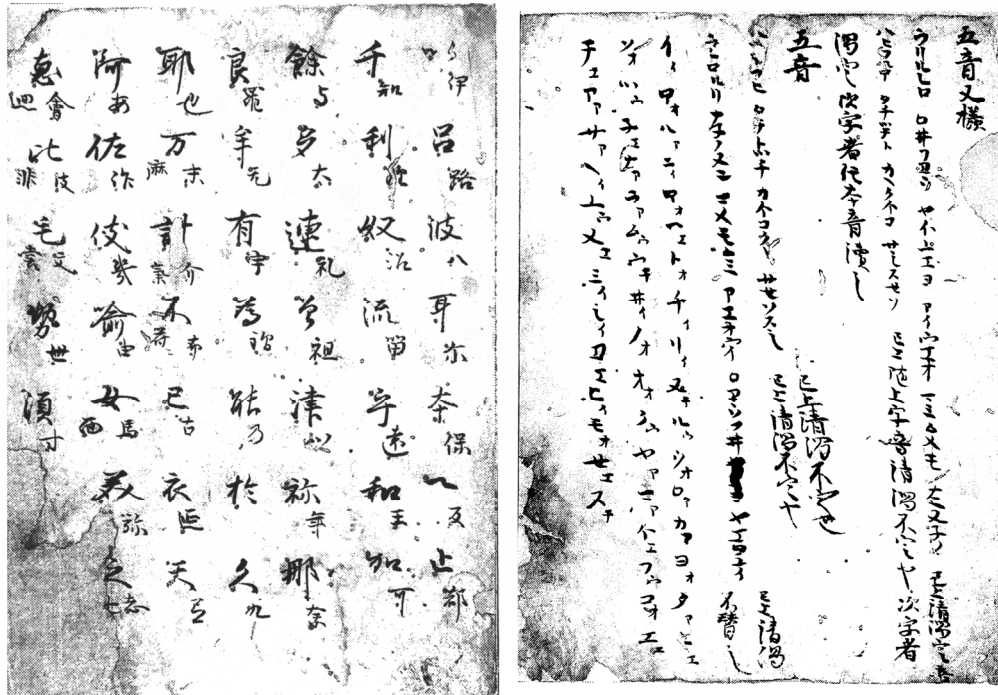 五音又様
ラリルレロ ワヰフヱヲ ヤイユエヨ アイウエオ マミムメモ ナニヌネノ 已上清濁
ハヒフヘホ タチツテト カキクケコ サシスセソ 已上随上字音清濁不定也 次字者
濁定也 次字者任本音讀也
五音
ハヘホフヒ タテトツチ カケコクキ サセソスシ 已上清濁不定也
已上清濁不定也
ラレロルリ ナネノヌニ マメモムミ アエオウイ ワヱヲフヰ ヤエヨユイ 已上清濁不替也
イィ ロォ ハァ ニィ ホォ ヘェ トォ チィ リィ ヌゥ ルゥ ヲォ ワァ カァ ヨォ タァ レェ
ソォ ツゥ ネェ ナァ ラァ ムゥ ウゥ ヰィ ノォ オォ クゥ ヤァ マァ ケェ フゥ コォ エェ
テェ アァ サァ キィ ユゥ メェ ミィ シィ ヱェ ヒィ モォ セェ スゥ
以伊 呂路 波八 耳尓 本保 へ反 止都
千知 利理 奴沼 流留 乎遠 和王 加可
餘与 多太 連礼 曽祖 津 祢年 那奈
良羅 牟无 有宇 為謂 能乃 於 久九
耶也 万末麻 計介氣 不布符 己古 衣延 天弖
阿安 佐作 伎畿 喩由 女馬面 美弥 之志士
恵會廻 比皮非 毛文裳 勢世 須寸